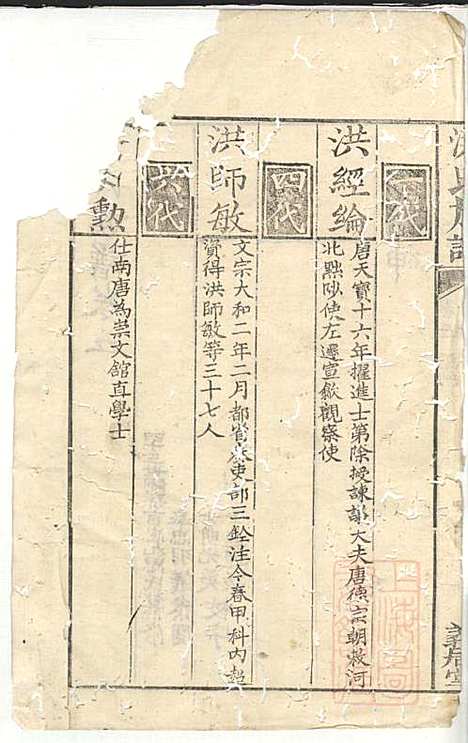 洪氏
一代
洪經綸
唐天寶十六年擢進士第除授諫議大夫唐德宗朝敕河
北黜陟使左遷宣歙觀察使
四代
洪師敏
文宗大和二年二月都省奏吏部三銓注令春甲科內超
資得洪師敏等三十七人
六代
勲
仕南唐為崇文館直學士